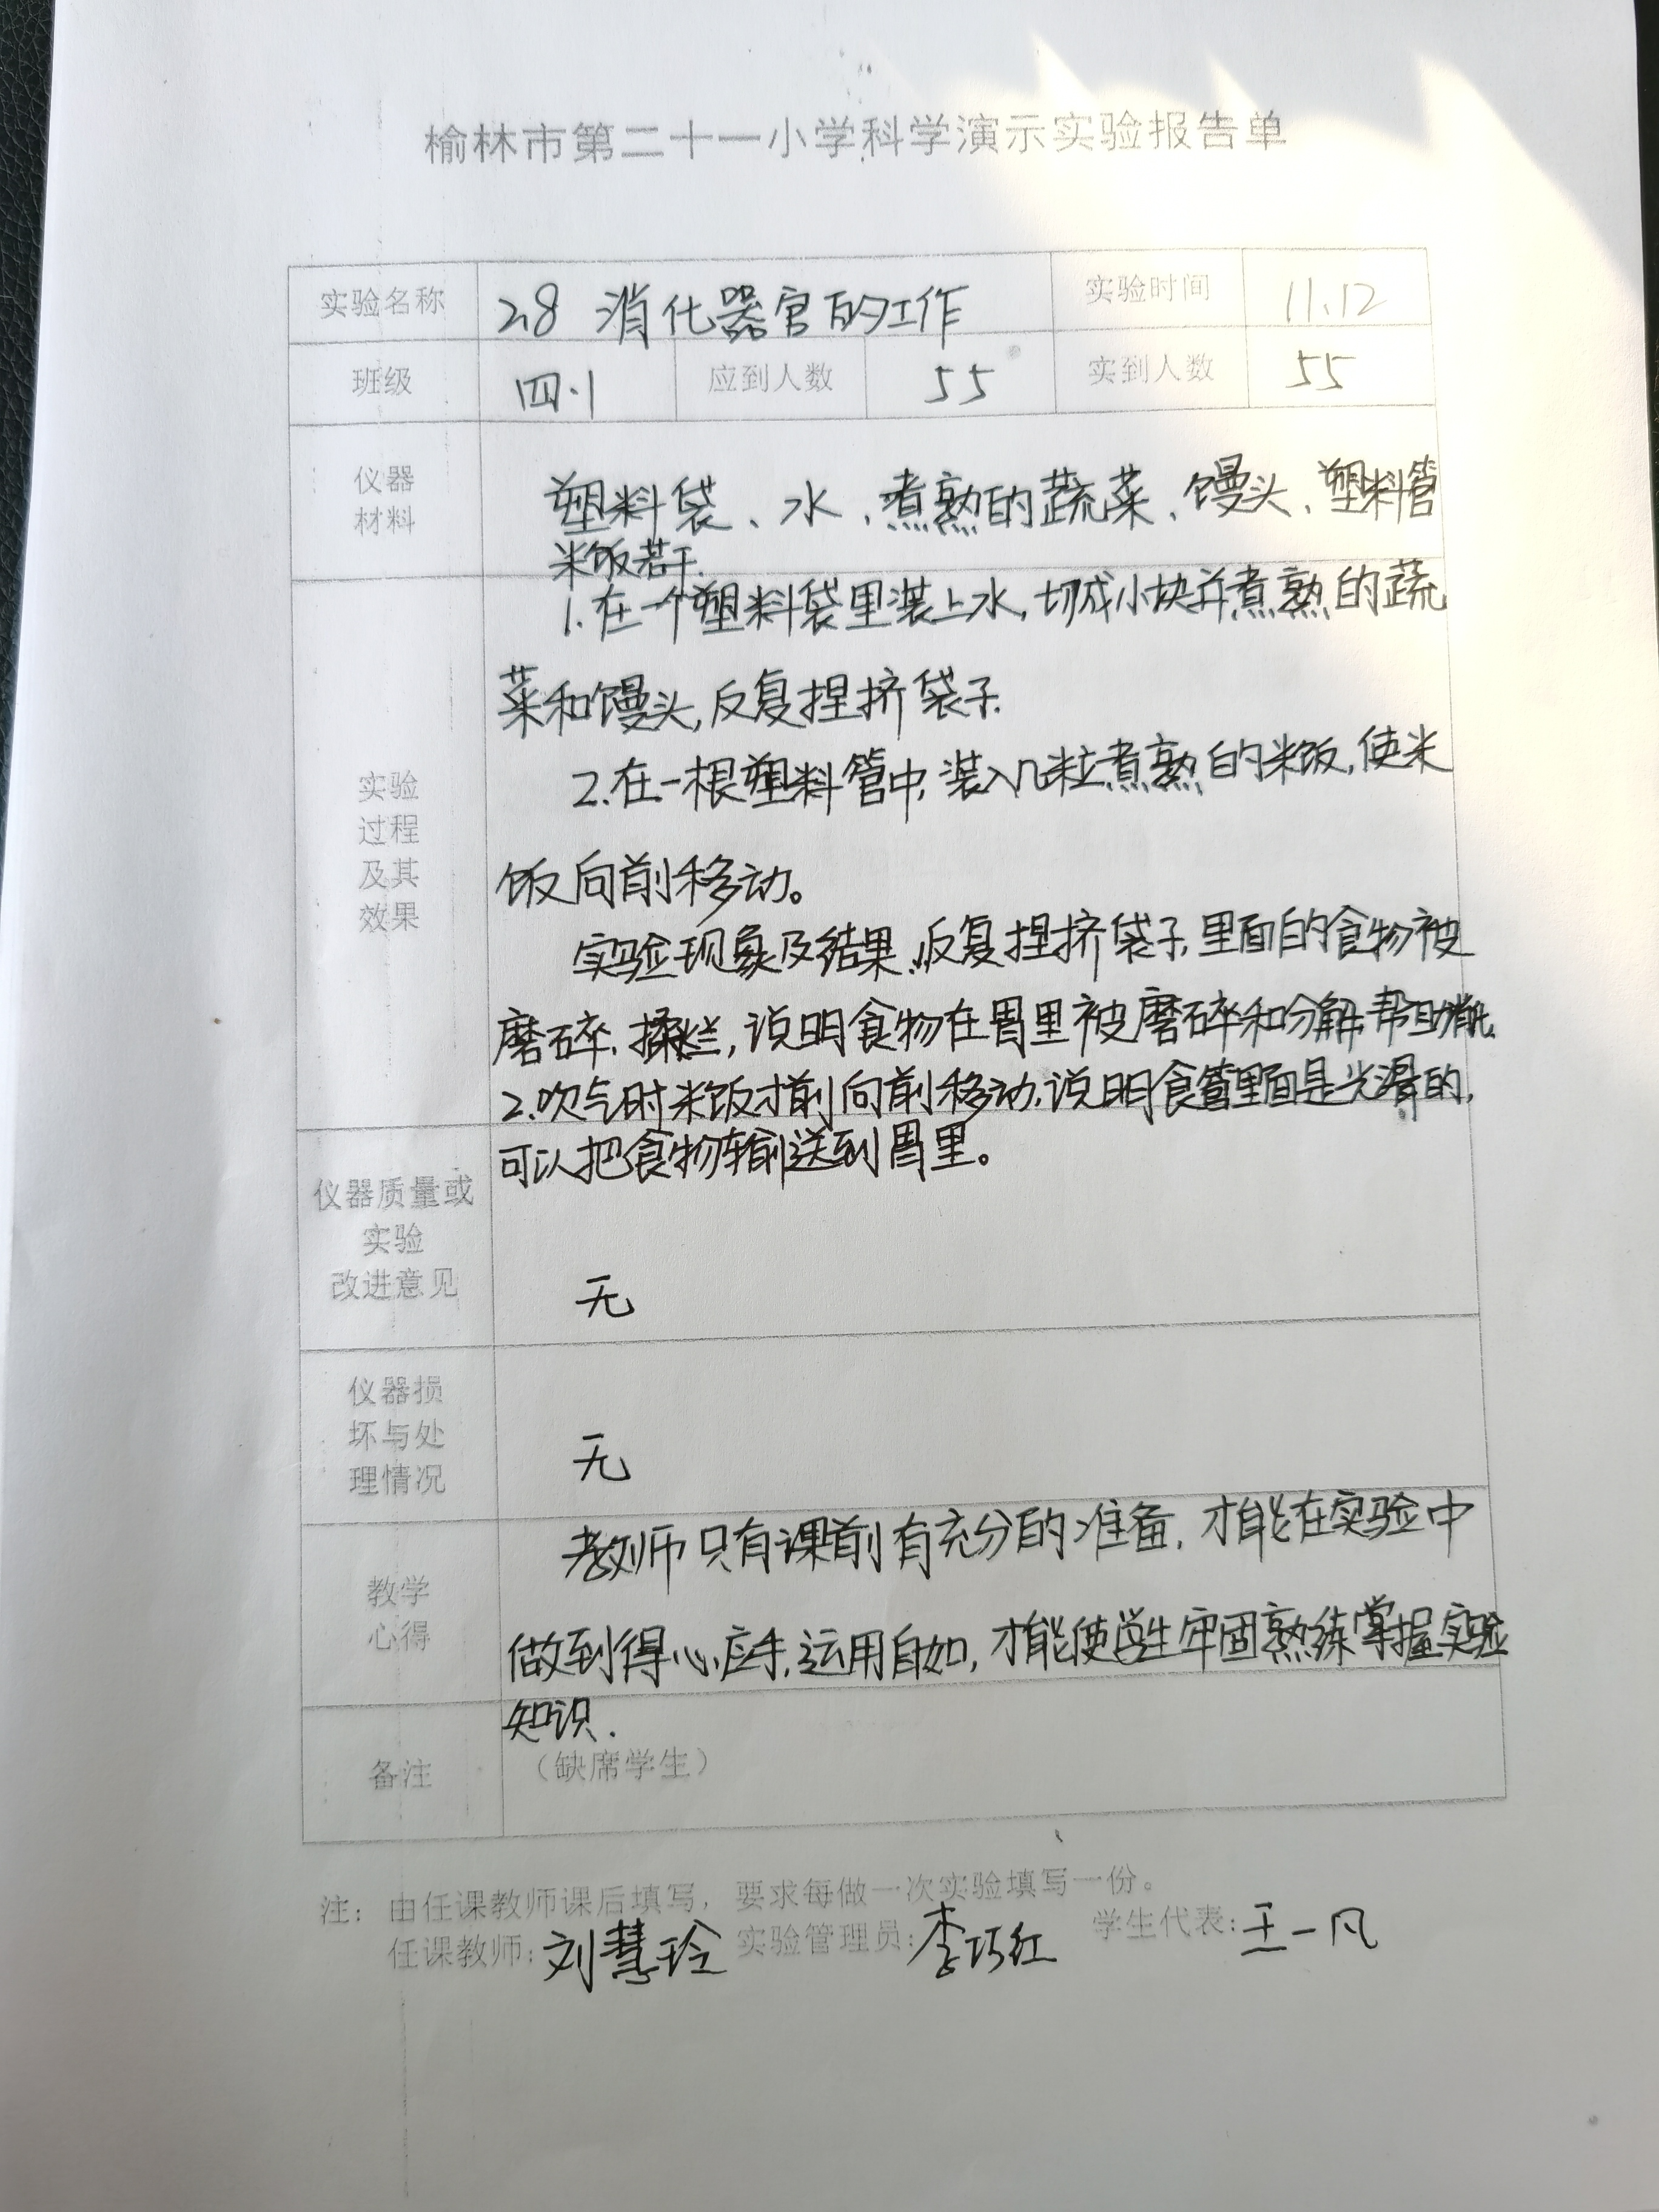 榆林市第二十一小学科学演示实验报告单
实验名称 2.8 消化器官的工作 实验时间 11.12
班级 四.1 应到人数 55 实到人数 55
仪器
材料
塑料袋、水、煮熟的蔬菜、馒头、塑料管
米饭若干.
实验
过程
及其
效果
1.在一个塑料袋里装上水,切成小块并煮熟的蔬
菜和馒头,反复捏挤袋子.
2.在一根塑料管中,装入几粒煮熟的米饭,使米
饭向前移动。
实验现象及结果.反复捏挤袋子,里面的食物被
磨碎.揉烂,说明食物在胃里被磨碎和分解.帮助消化.
2.吹气时米饭才前向前移动.说明食管里面是光滑的,
可以把食物输送到胃里。
仪器质量或
实验
改进意见
无
仪器损
坏与处
理情况
无
教学
心得
教师只有课前有充分的准备,才能在实验中
做到得心应手,运用自如,才能使学生牢固熟练掌握实验
知识.
备注 （缺席学生）
注：由任课教师课后填写，要求每做一次实验填写一份。
任课教师:刘慧玲 实验管理员:李巧红 学生代表:王一凡